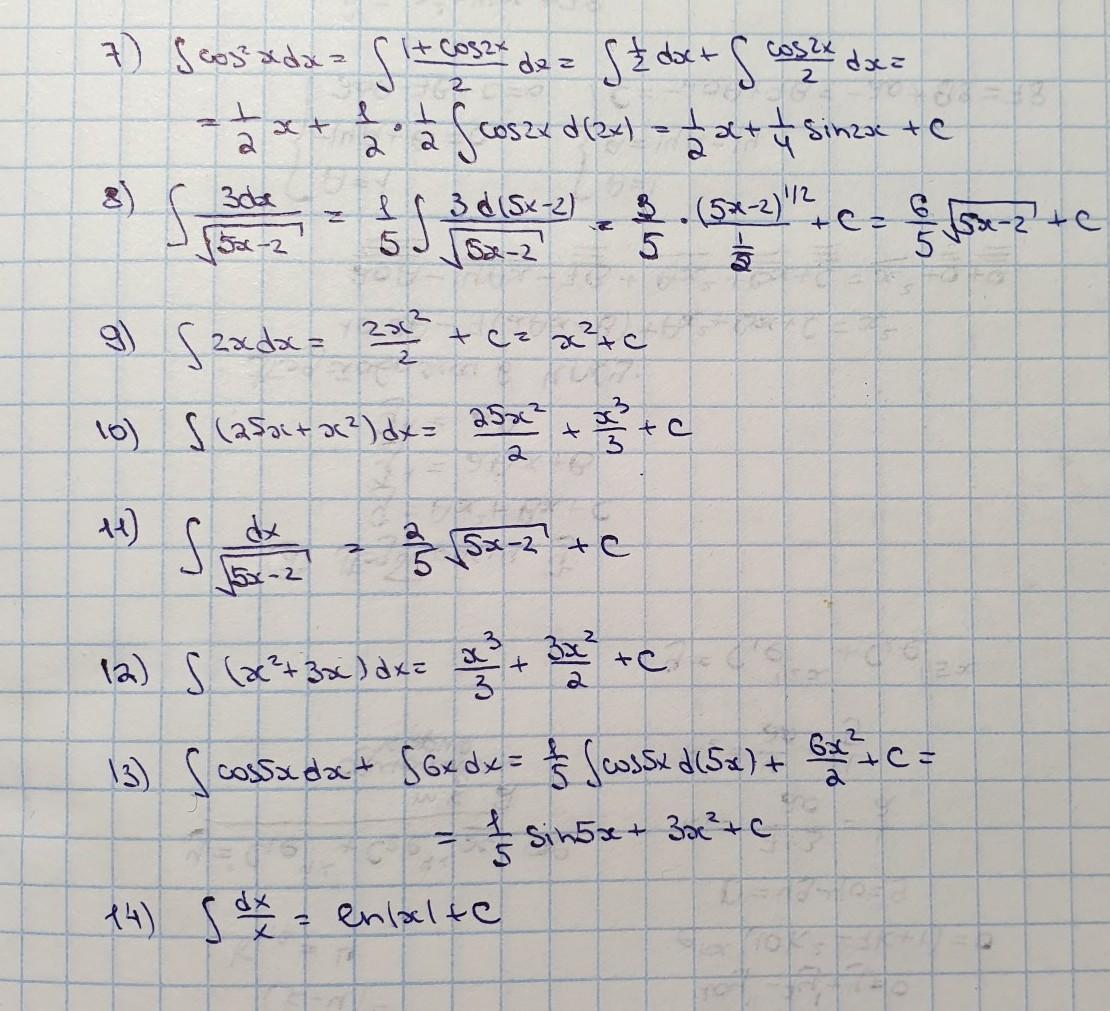 7) ∫cos²xdx = ∫ (1+cos2x)/2 dx = ∫ 1/2 dx + ∫ cos2x/2 dx =
= 1/2 x + 1/2 · 1/2 ∫cos2x d(2x) = 1/2 x + 1/4 sin2x + C
8) ∫ 3dx/√(5x-2) = 1/5 ∫ 3d(5x-2)/√(5x-2) = 3/5 · (5x-2)^(1/2)/(1/2) + C = 6/5 √(5x-2) + C
9) ∫ 2xdx = 2x²/2 + C = x² + C
10) ∫ (25x+x²)dx = 25x²/2 + x³/3 + C
11) ∫ dx/√(5x-2) = 2/5 √(5x-2) + C
12) ∫ (x²+3x)dx = x³/3 + 3x²/2 + C
13) ∫ cos5xdx + ∫6xdx = 1/5 ∫cos5x d(5x) + 6x²/2 + C =
= 1/5 sin5x + 3x² + C
14) ∫ dx/x = ln|x| + C